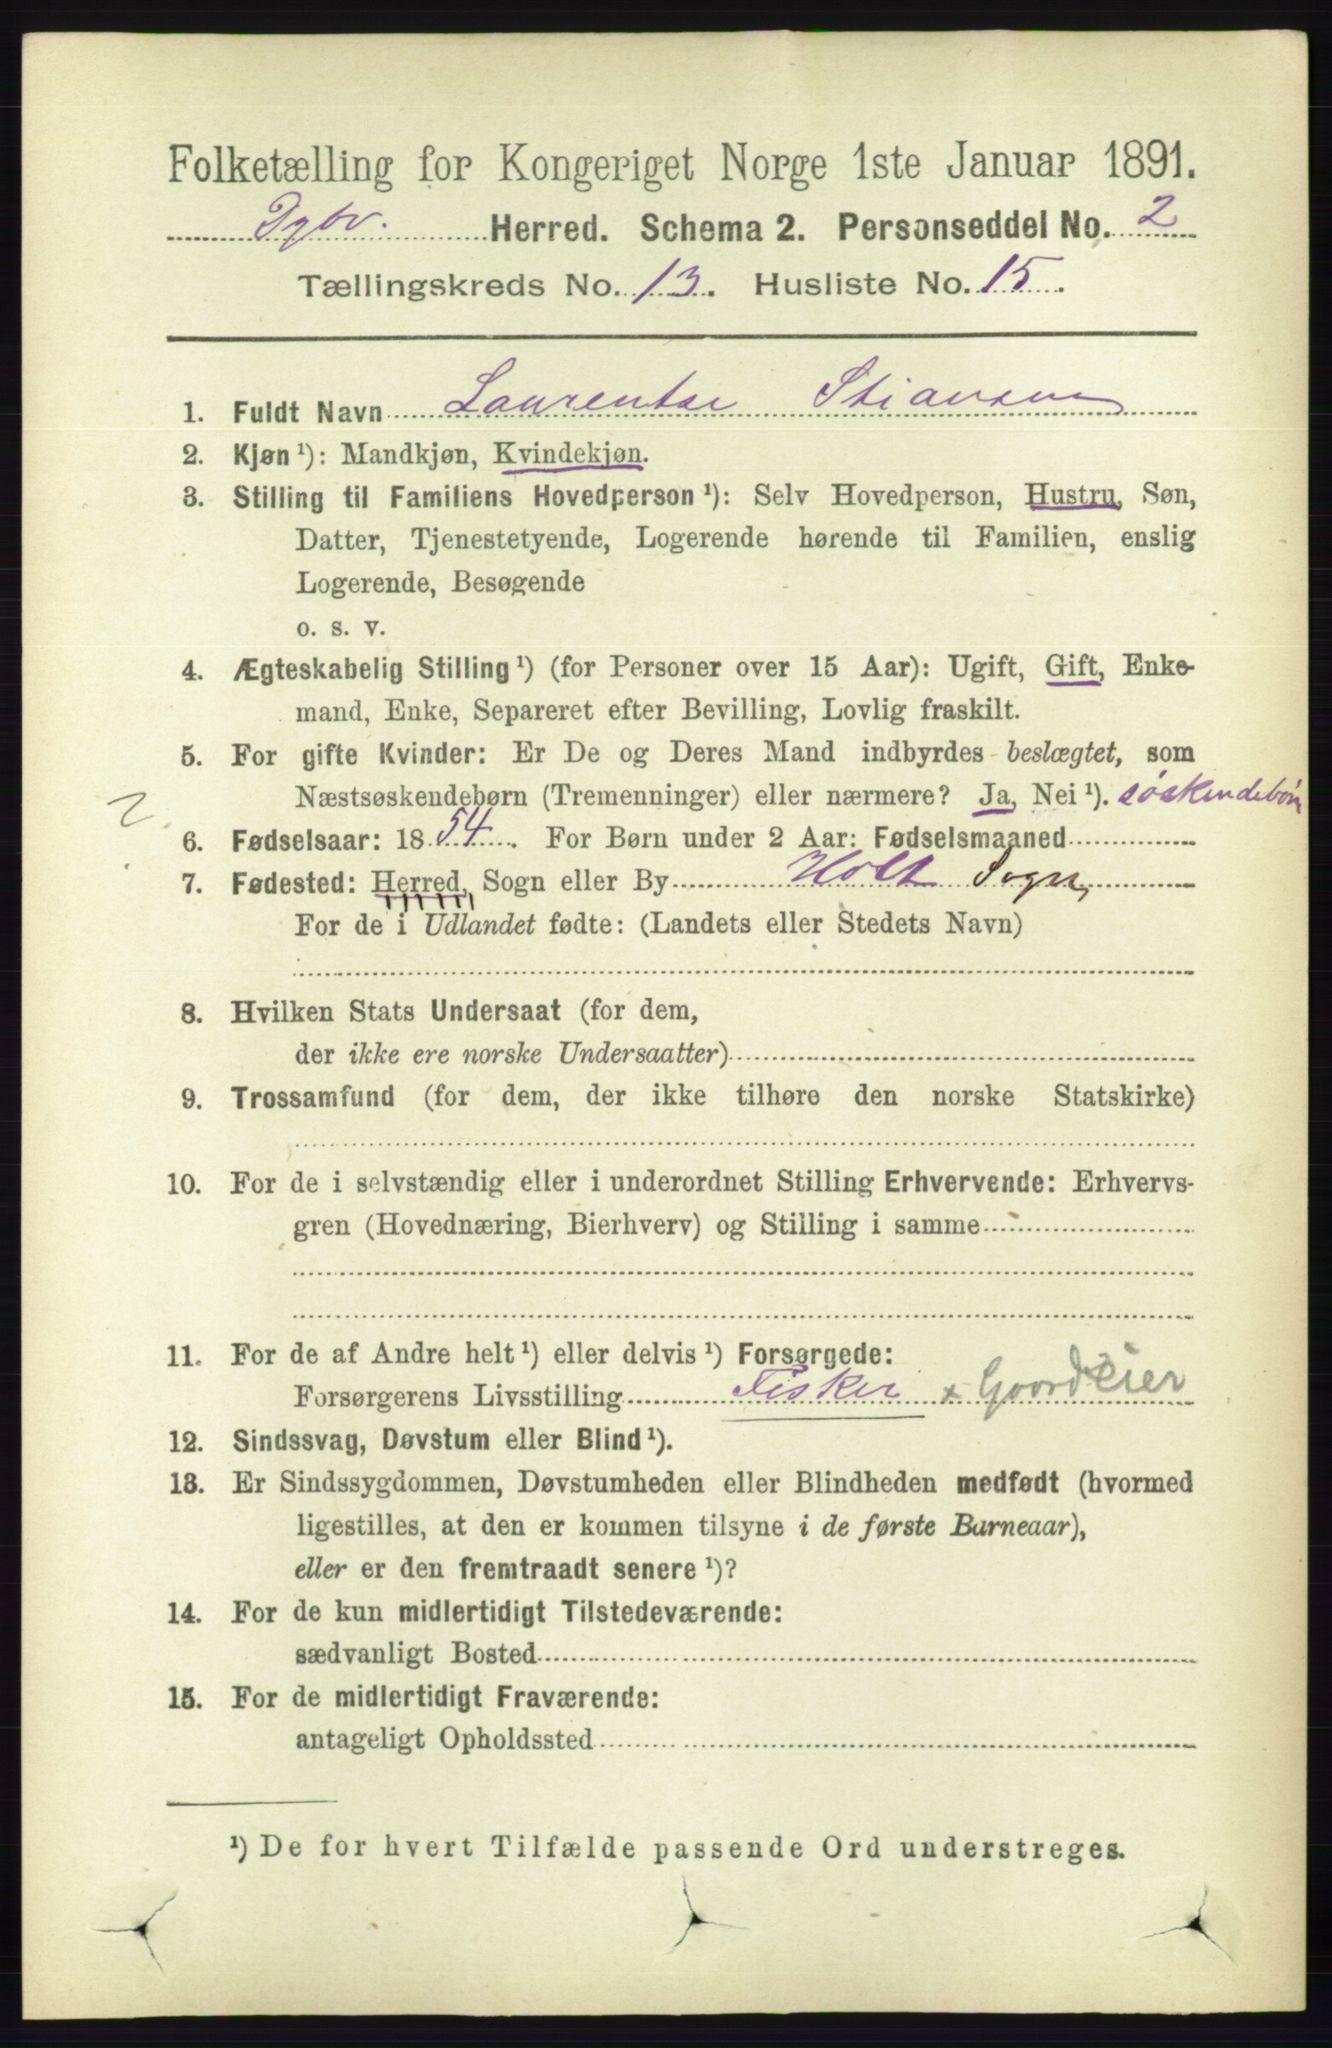 Folketælling for Kongeriget Norge 1ste Januar 1891.
Dybv. Herred. Schema 2. Personseddel No. 2
Tællingskreds No. 13. Husliste No. 15.
1. Fuldt Navn Laurentse Stiansen
2. Kjøn ¹): Mandkjøn, Kvindekjøn.
3. Stilling til Familiens Hovedperson ¹): Selv Hovedperson, Hustru, Søn,
Datter, Tjenestetyende, Logerende hørende til Familien, enslig
Logerende, Besøgende
o. s. v.
4. Ægteskabelig Stilling ¹) (for Personer over 15 Aar): Ugift, Gift, Enke-
mand, Enke, Separeret efter Bevilling, Lovlig fraskilt.
5. For gifte Kvinder: Er De og Deres Mand indbyrdes beslægtet, som
Næstsøskendebørn (Tremenninger) eller nærmere? Ja, Nei ¹). søskendebørn
2
6. Fødselsaar: 1854. For Børn under 2 Aar: Fødselsmaaned
7. Fødested: Herred, Sogn eller By Holt Sogn,
For de i Udlandet fødte: (Landets eller Stedets Navn)
8. Hvilken Stats Undersaat (for dem,
der ikke ere norske Undersaatter)
9. Trossamfund (for dem, der ikke tilhøre den norske Statskirke)
10. For de i selvstændig eller i underordnet Stilling Erhvervende: Erhvervs-
gren (Hovednæring, Bierhverv) og Stilling i samme
11. For de af Andre helt ¹) eller delvis ¹) Forsørgede:
Forsørgerens Livsstilling Fisker x Gaardeier
12. Sindssvag, Døvstum eller Blind ¹).
13. Er Sindssygdommen, Døvstumheden eller Blindheden medfødt (hvormed
ligestilles, at den er kommen tilsyne i de første Barneaar),
eller er den fremtraadt senere ¹)?
14. For de kun midlertidigt Tilstedeværende:
sædvanligt Bosted
15. For de midlertidigt Fraværende:
antageligt Opholdssted
¹) De for hvert Tilfælde passende Ord understreges.